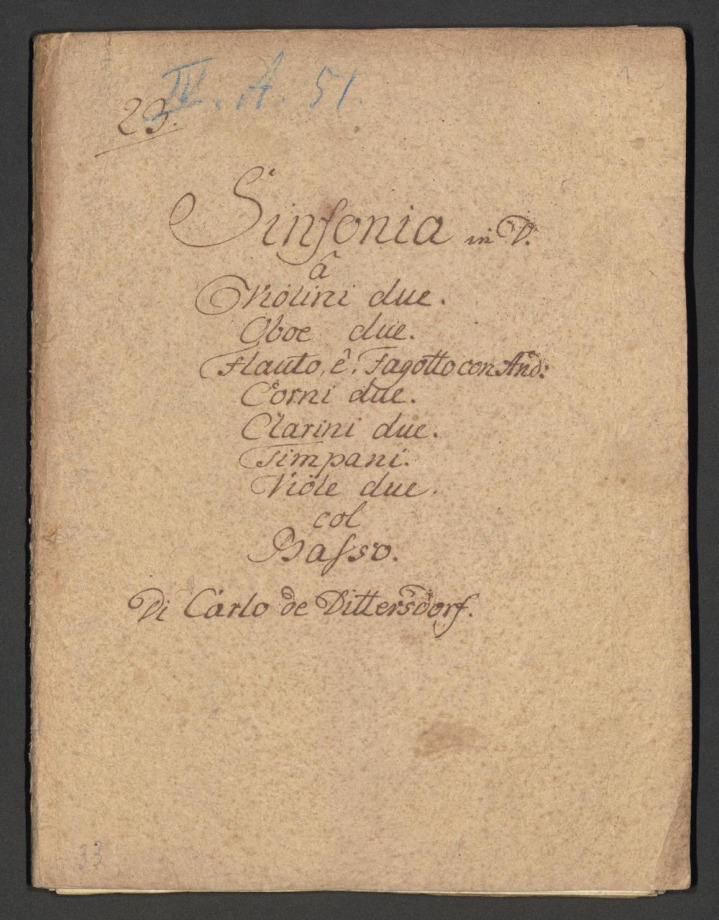 IV. A. 51.
23.
Sinfonia in D.
â
Violini due.
Oboe due.
Flauto, ê, Fagotto con And:
Corni due.
Clarini due.
Timpani.
Viole due.
col
Baſso.
Di Carlo de Dittersdorf.
33